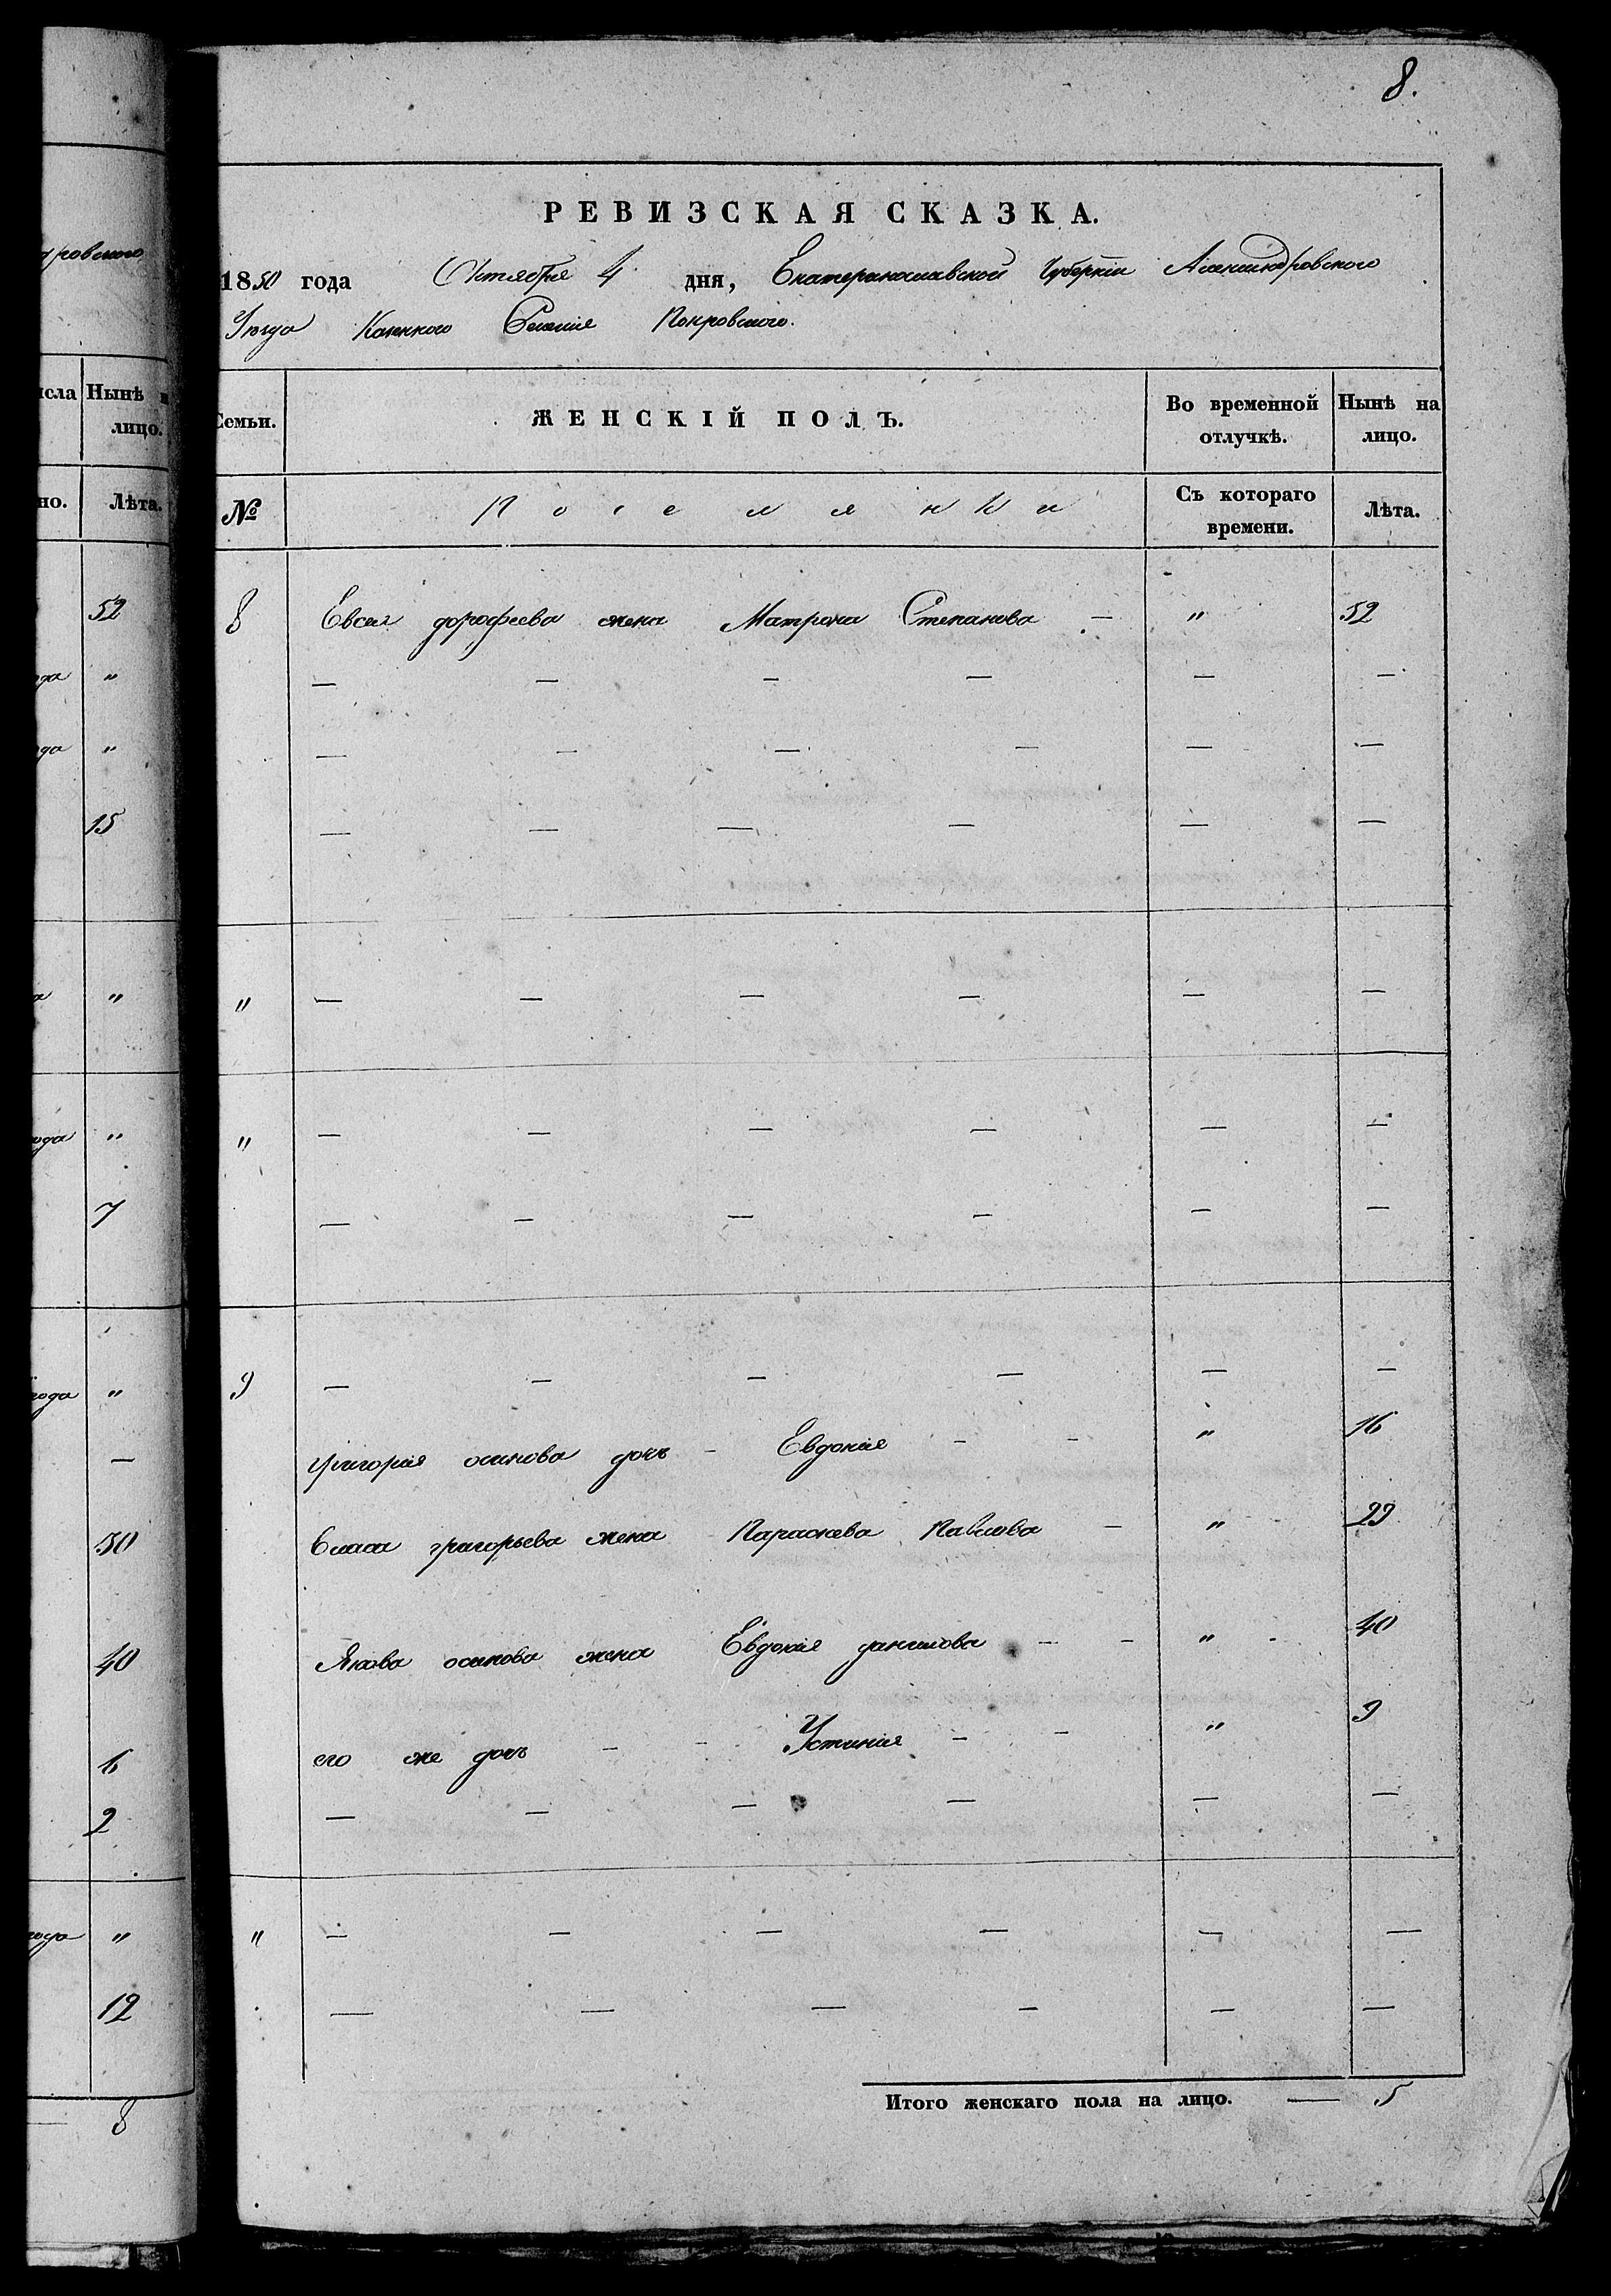 8.
РЕВИЗСКАЯ СКАЗКА.
1850 года Октября 4 дня, Екатеринославской Губернии Александровского
Уезда Казенного Селения Покровского.
Семьи. ЖЕНСКІЙ ПОЛЪ. Во временной отлучкѣ. Нынѣ на лицо.
№ Поселянки Съ котораго времени. Лѣта.
8 Евсея дорофеева жена Матрона Степанова — " 52
— — — — — —
— — — — — —
— — — — — —
" — — — — — —
" — — — — — —
— — — — — —
9 — — — — — —
григория осипова дочь - Евдокия - - " 16
Власа григорьева жена Параскева Павлова — " 23
Якова осипова жена Евдокия данилова - - " 40
его же дочь - - Устиния - - " 9
— — — — — —
" — — — — — —
— — — — — —
Итого женскаго пола на лицо. — 5
ровского
исла Нынѣ
лицо.
но. Лѣта.
52
года "
года "
15
а "
года "
7
года "
—
30
40
6
2
года "
12
— 8